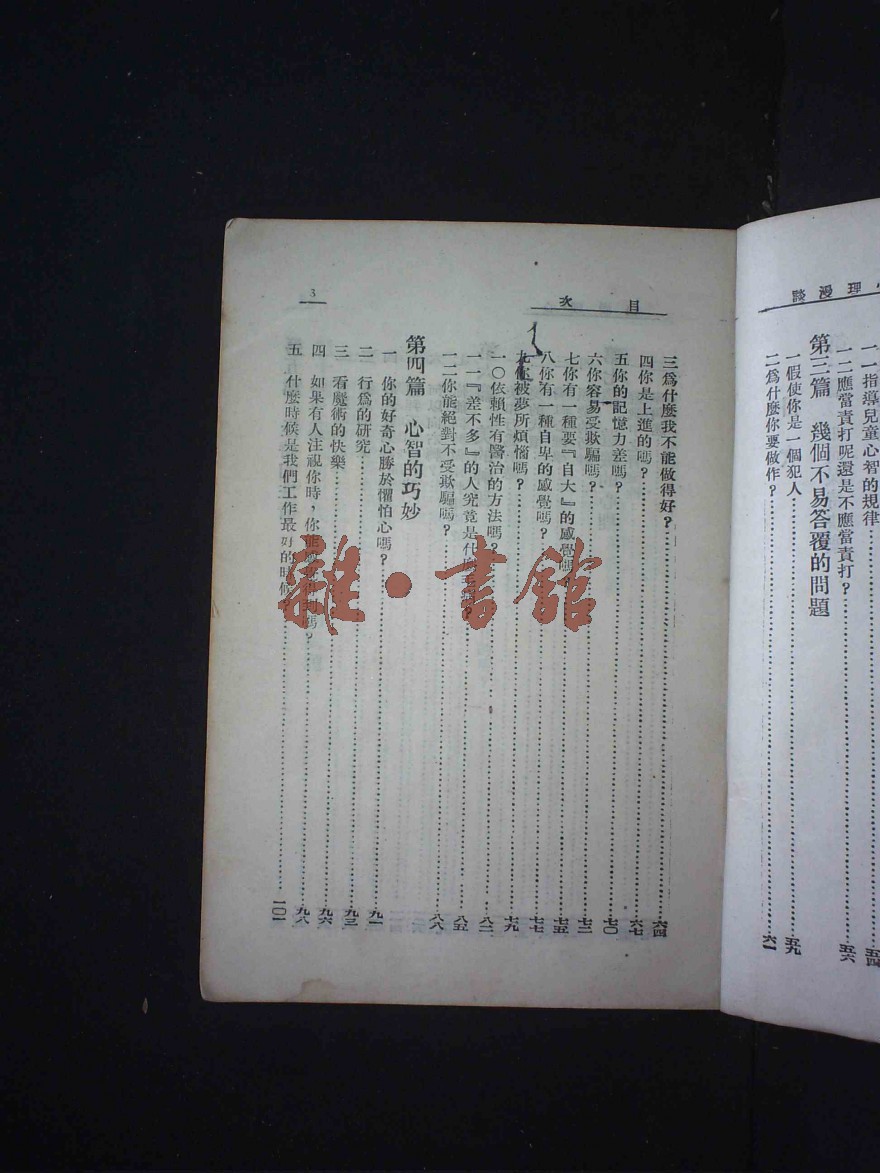 理漫談
一一指導兒童心智的規律……五四
一二應當責打呢還是不應當責打?……五六
第三篇 幾個不易答覆的問題
一假使你是一個犯人……五九
二爲什麼你要做作?……六一
目次
3
三爲什麼我不能做得好?……六四
四你是上進的嗎?……六七
五你的記憶力差嗎?……七〇
六你容易受欺騙嗎?……七三
七你有一種要『自大』的感覺嗎?……七五
八你有一種自卑的感覺嗎?……七七
九你被夢所煩惱嗎?……七九
一〇依賴性有醫治的方法嗎?……八二
一一『差不多』的人究竟是什……八五
一二你能絕對不受欺騙嗎?……八八
第四篇 心智的巧妙
一 你的好奇心勝於懼怕心嗎?……九一
二 行爲的研究……九三
三 看魔術的快樂……九六
四 如果有人注視你時,你能……嗎?……九八
五 什麼時候是我們工作最好的時候?……一〇一
雜·書館